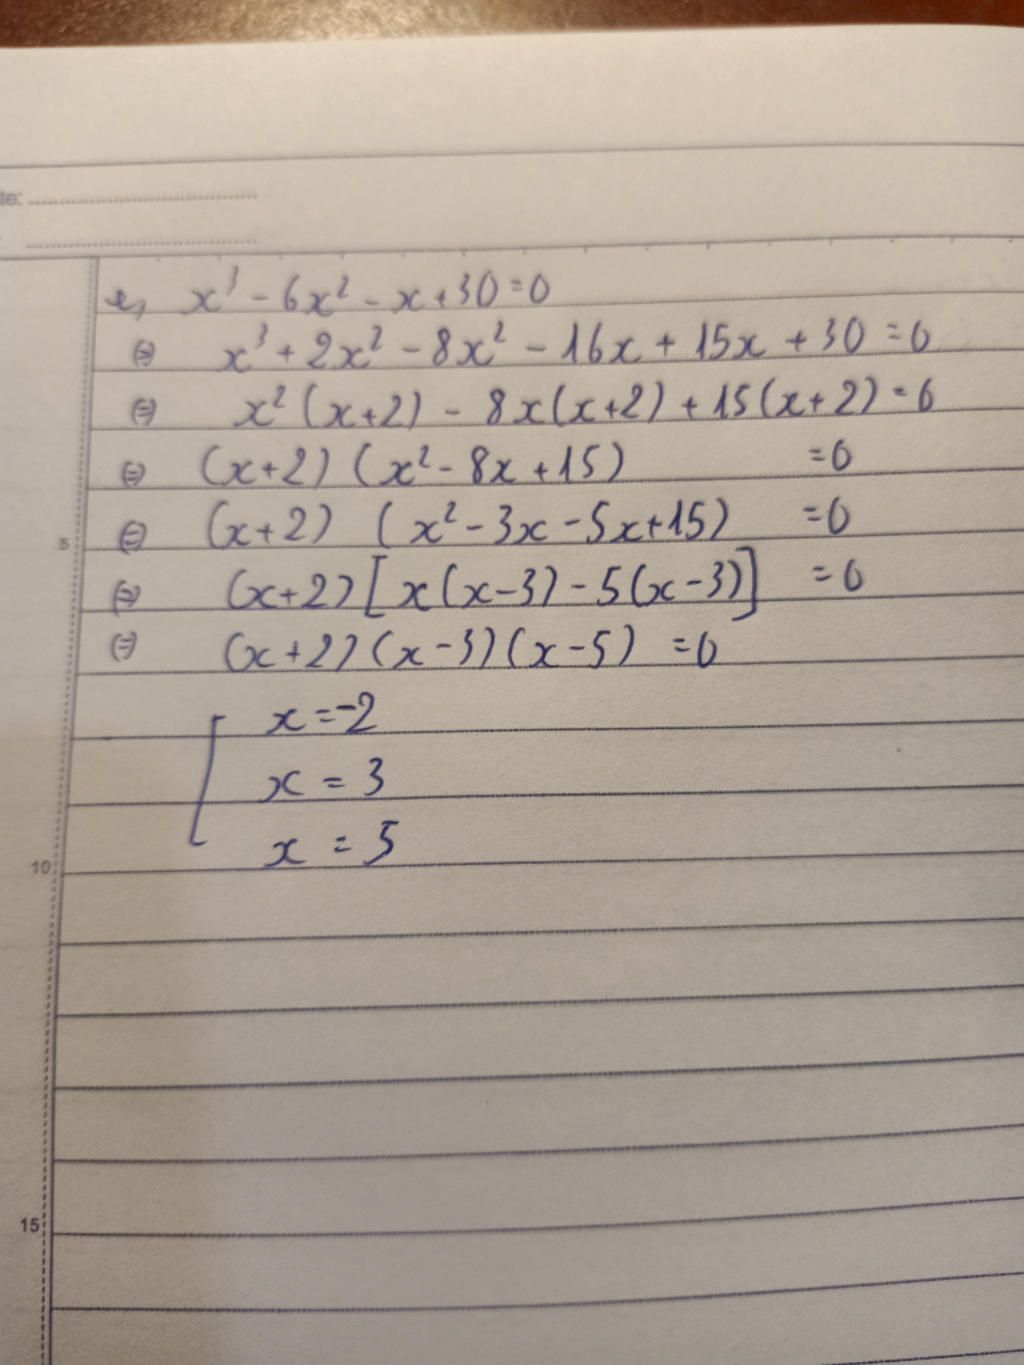 te:
e, x³ - 6x² - x + 30 = 0
⇔ x³ + 2x² - 8x² - 16x + 15x + 30 = 0
⇔ x² (x+2) - 8x(x+2) + 15(x+2) = 0
⇔ (x+2) (x² - 8x + 15) = 0
5 ⇔ (x+2) (x² - 3x - 5x + 15) = 0
⇔ (x+2) [x(x-3) - 5(x-3)] = 0
⇔ (x+2)(x-3)(x-5) = 0
[ x = -2
x = 3
x = 5
10
15